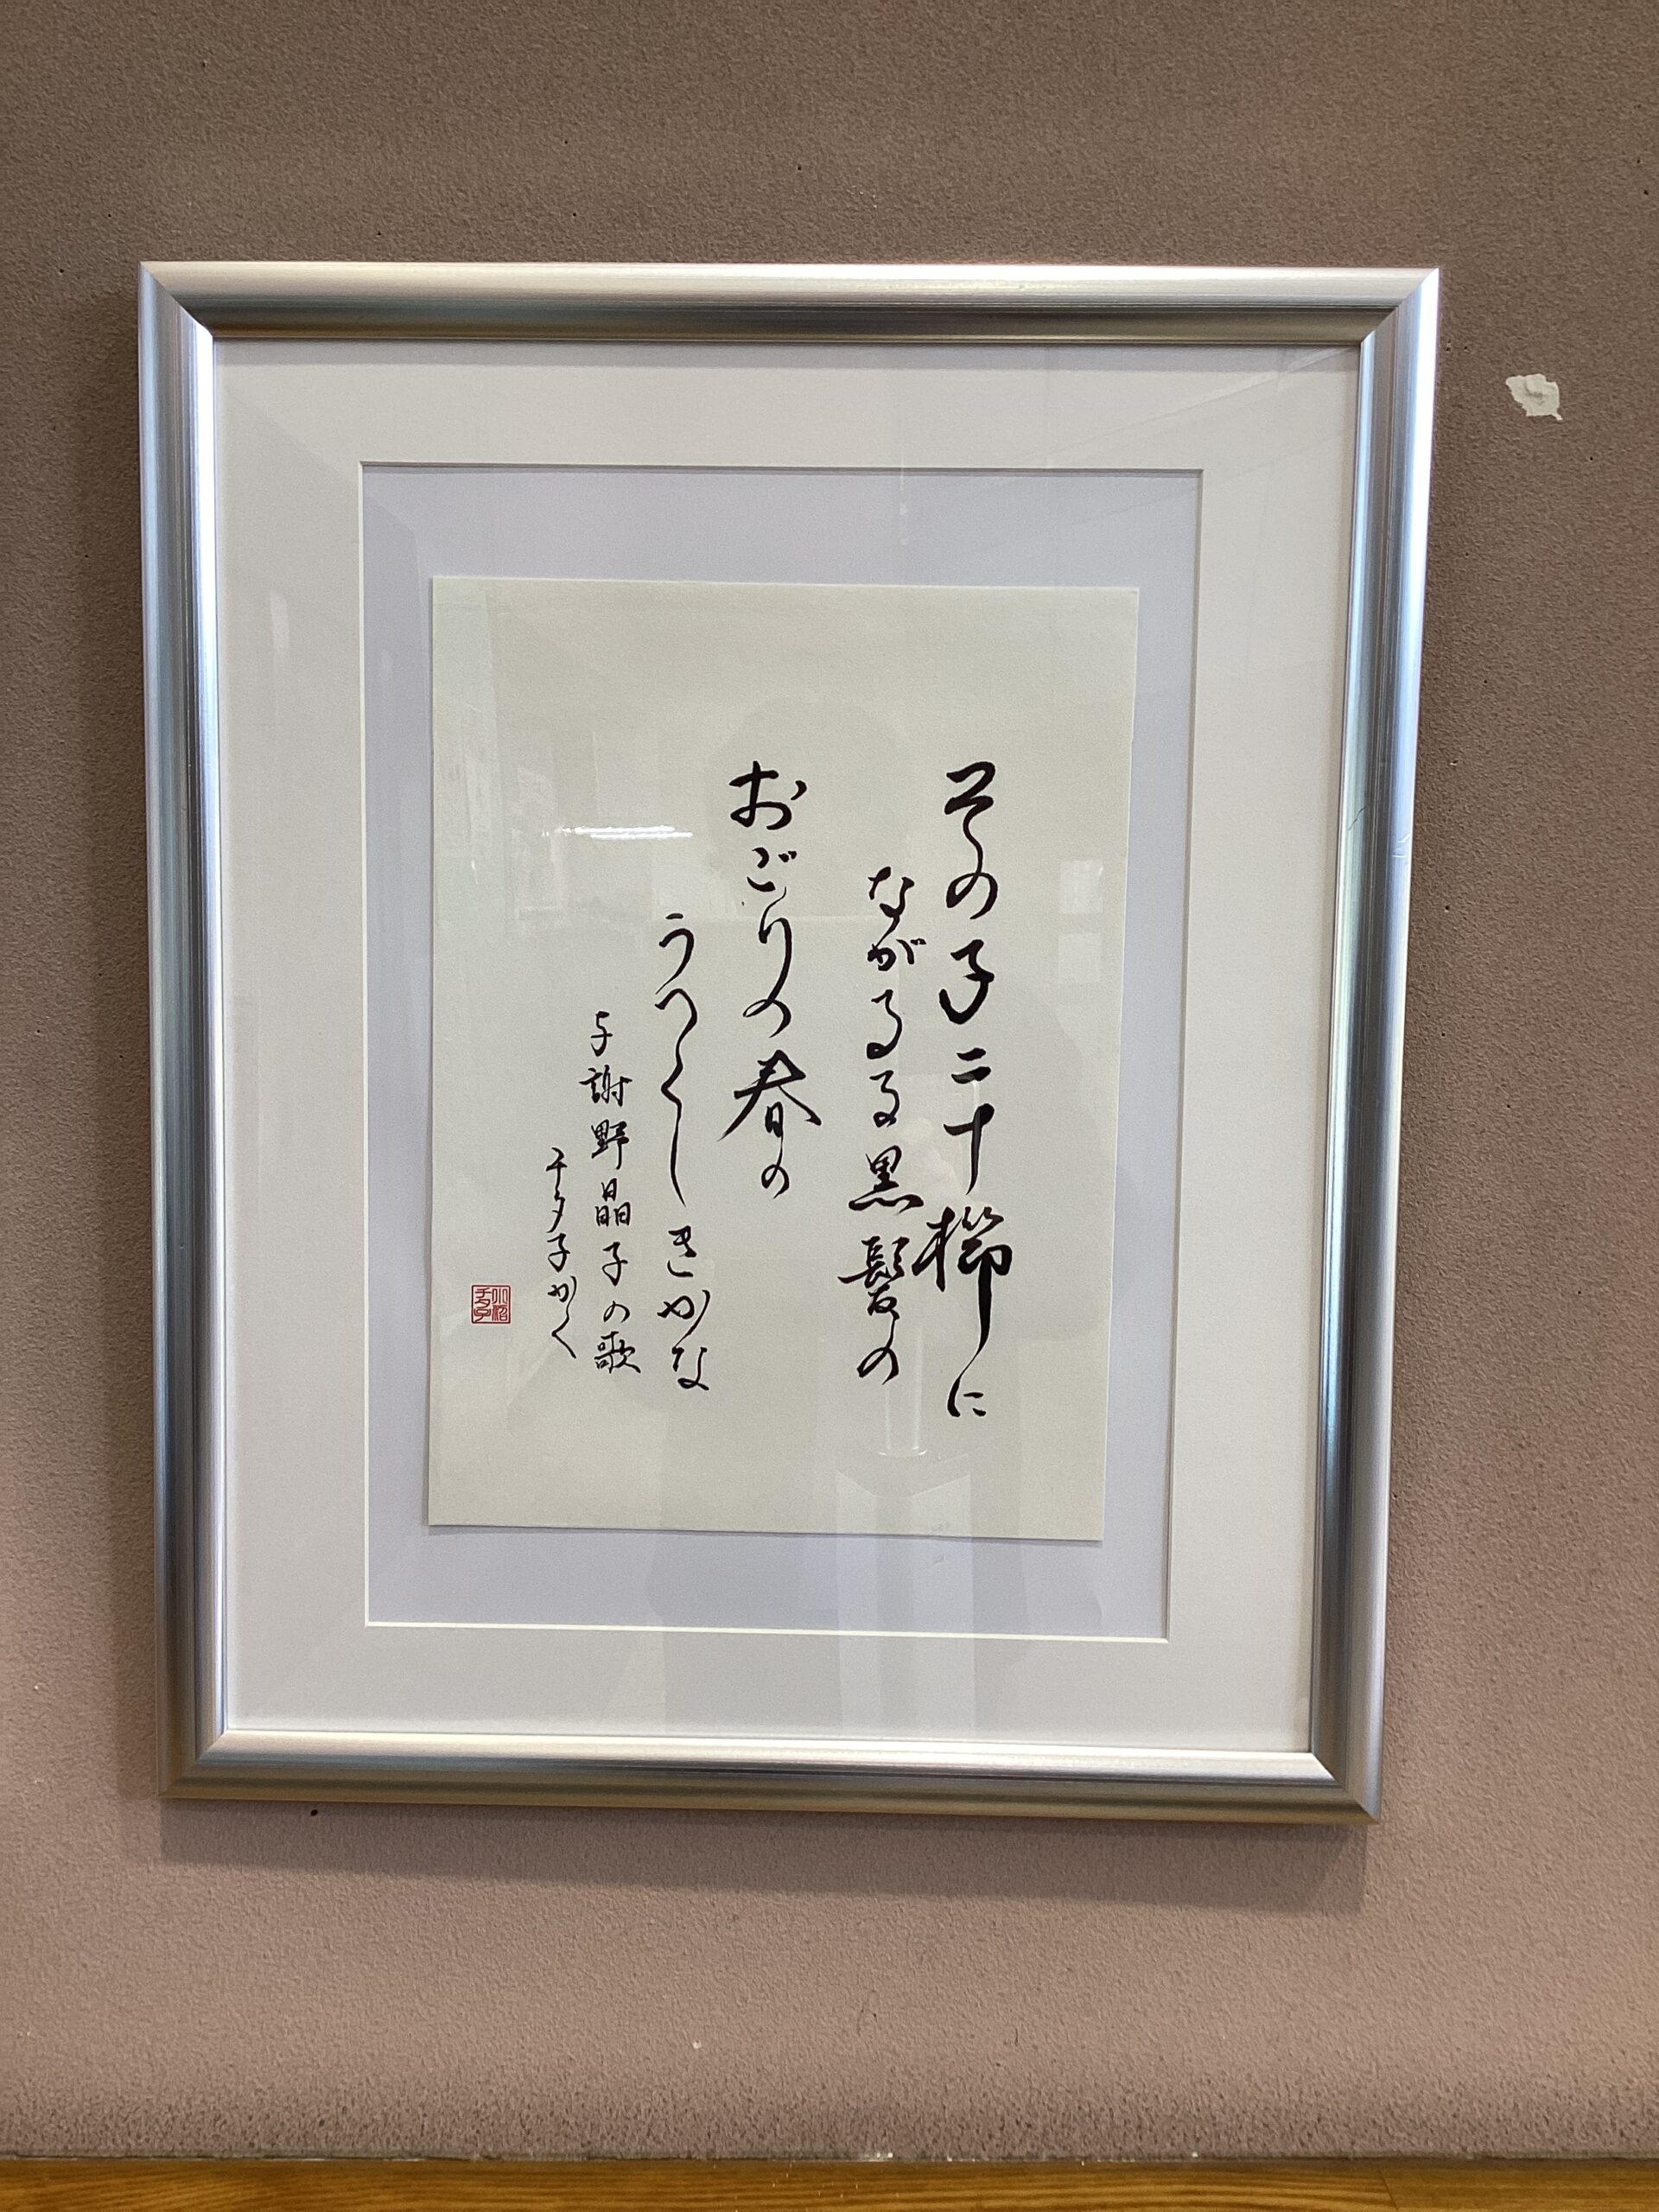 その子二十櫛に
ながるる黒髪の
おごりの春の
うつくしきかな
与謝野晶子の歌
千夕子かく